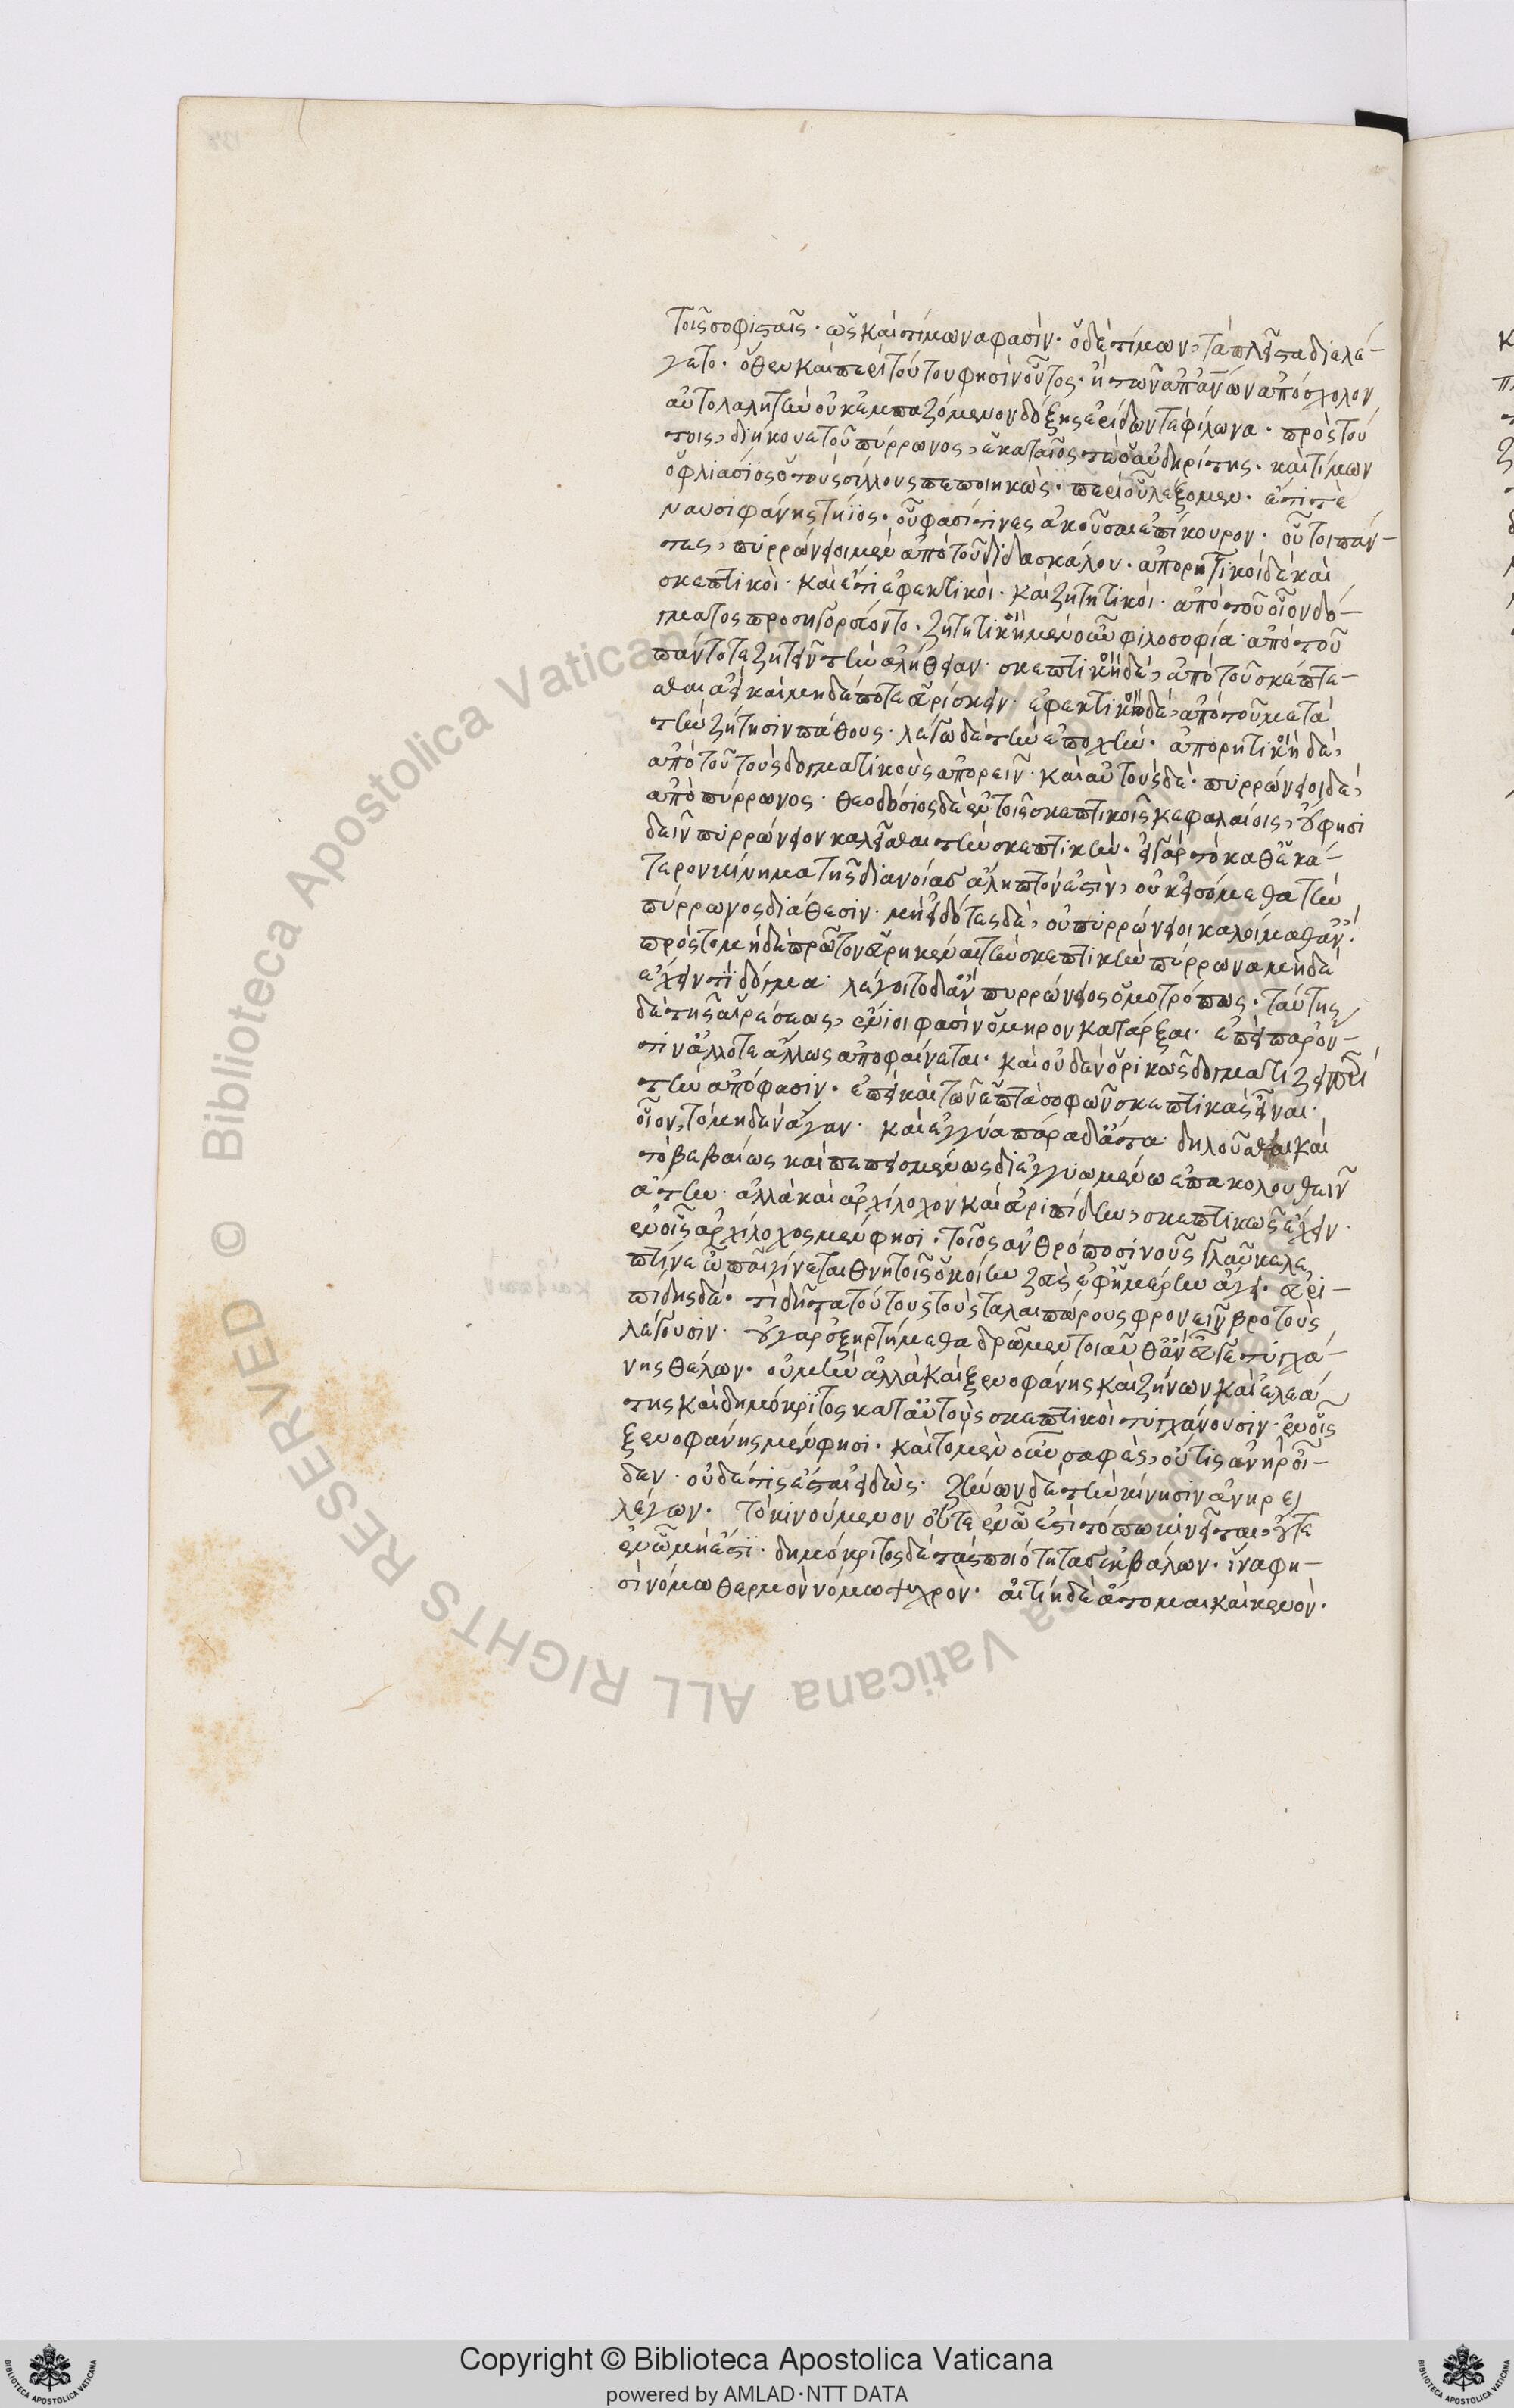 τοῖς σοφισταῖς· ὡς καὶ τίμων ἀφασὶν· ὁ δὲ τίμων, τὰ πλεῖστα διελέ-
γετο· ὅθεν καὶ περὶ τούτου φησὶν οὕτος· ἢ τῶν ἀπ' ἀνῶν ἀπόσχολον
αὐτολαλητὴν οὐκ ἐμπαζόμενον δόξης ἐρίδων τε φίλωνα· πρὸς τού
τοις, διήκουε τοῦ πύρρωνος, ἑκαταῖος τὲ ὁ αὐδηρίτης· καὶ τίμων
ὁ φλιάσϊος ὁ τοὺς σίλλους πεποιηκὼς· περὶ οὗ λέξομεν· ἔτι τὲ
ναυσιφάνης τήϊος· οὗ φασί τινες ἀκοῦσαι ἐπίκουρον· οὗτοι πάν-
τες, πυρρώνειοι μὲν ἀπὸ τοῦ διδασκάλου· ἀπορητικοὶ δὲ καὶ
σκεπτικοὶ· καὶ ἔτι ἐφεκτικοὶ· καὶ ζητητικοὶ· ἀπὸ τοῦ οἷον δό-
γματος προσηγορεύοντο· ζητητικὴ μὲν οὖν φιλοσοφία ἀπὸ τοῦ
πάντοτε ζητεῖν τὴν ἀλήθειαν· σκεπτικὴ δὲ, ἀπὸ τοῦ σκέπτε-
σθαι ἀεὶ καὶ μηδέποτε εὑρίσκειν· ἐφεκτικὴ δὲ, ἀπὸ τοῦ μετὰ
τὴν ζήτησιν πάθους· λέγω δὲ τὴν ἐποχὴν· ἀπορητικὴ δὲ,
ἀπὸ τοῦ τοὺς δογματικοὺς ἀπορεῖν· καὶ αὐτοὺς δὲ· πυρρώνειοι δὲ,
ἀπὸ πύρρωνος· θεοδόσιος δὲ ἐν τοῖς σκεπτικοῖς κεφαλαίοις, οὔ φησι
δεῖν πυρρώνειον καλεῖσθαι τὴν σκεπτικὴν· εἰ γὰρ τὸ καθ' ἑκά-
τερον κίνημα τῆς διανοίας ἄληπτον ἐστὶν, οὐκ εἰσόμεθα τὴν
πύρρωνος διάθεσιν· μὴ εἰδότες δὲ, οὐ πυρρώνειοι καλοίμεθ' ἂν·
πρὸς τὸ μὴ δὲ πρῶτον εὑρηκέναι τὴν σκεπτικὴν πύρρωνα μὴ δὲ
ἔχειν τὶ δόγμα· λέγοιτο δ' ἂν πυρρώνειος ὁμοτρόπως· ταύτης
δὲ τῆς αἱρέσεως, ἔνιοι φασὶν ὅμηρον κατάρξαι· ἐπεὶ παρὸν-
τιν ἄλλοτε ἄλλως ἀποφαίνεται· καὶ οὐδὲν ὁρικῶς δογματίζει περὶ
τὴν ἀπόφασιν· ἐπεὶ καὶ τῶν ἑπτὰ σοφῶν σκεπτικὰς εἶναι·
οἷον, τὸ μηδὲν ἄγαν· καὶ ἐγγύα πάρα δ' ἄτα· δηλοῦσθαι καὶ
τὸ βεβαίως καὶ πεπεισμένως διεγγυωμένω ἐπακολουθεῖν
ἄτην· ἀλλὰ καὶ ἀρχίλοχον καὶ εὐριπίδην, σκεπτικῶς ἔχειν·
ἐν οἷς ἀρχίλοχος μέν φησι· τοῖος ἀνθρόποσι νοῦς γλαῦκε λε
πτίνεω παῖ γίνεται θνητοῖς ὁκοίην ζεὺς ἐφ' ἡμέρην ἄγει· εὐρι-
πίδης δὲ· τὶ δῆτα τούτους τοὺς ταλαιπώρους φρονεῖν βροτοὺς
λέγουσιν· οὗ γὰρ ἐξηρτήμεθα δρῶμεν τοιαῦθ' ἃν ἂν τε τυγχά-
νης θέλων· οὐ μὴν ἀλλὰ καὶ ξενοφάνης καὶ ζήνων καὶ ἐλεά-
της καὶ δημόκριτος κατ' αὐτοὺς σκεπτικοὶ τυγχάνουσιν· ἐν οἷς
ξενοφάνης μέν φησι· καὶ τὸ μὲν οὖν σαφὲς, οὔτις ἀνὴρ οἶ-
δεν· οὐδέ τις ἔσται εἰδὼς· ζήνων δὲ τὴν κίνησιν ἀνηρεῖ
λέγων· τὸ κινούμενον οὔτε ἐν ᾧ ἐστὶ τόπω κινεῖται, οὔτε
ἐν ᾧ μὴ ἐστί· δημόκριτος δὲ τὰς ποιότητας ἐκβάλων· ἵνα φη-
σὶ νόμω θερμὸν νόμω ψυχρὸν· αἰτίη δὲ ἄτομα καὶ κενὸν·